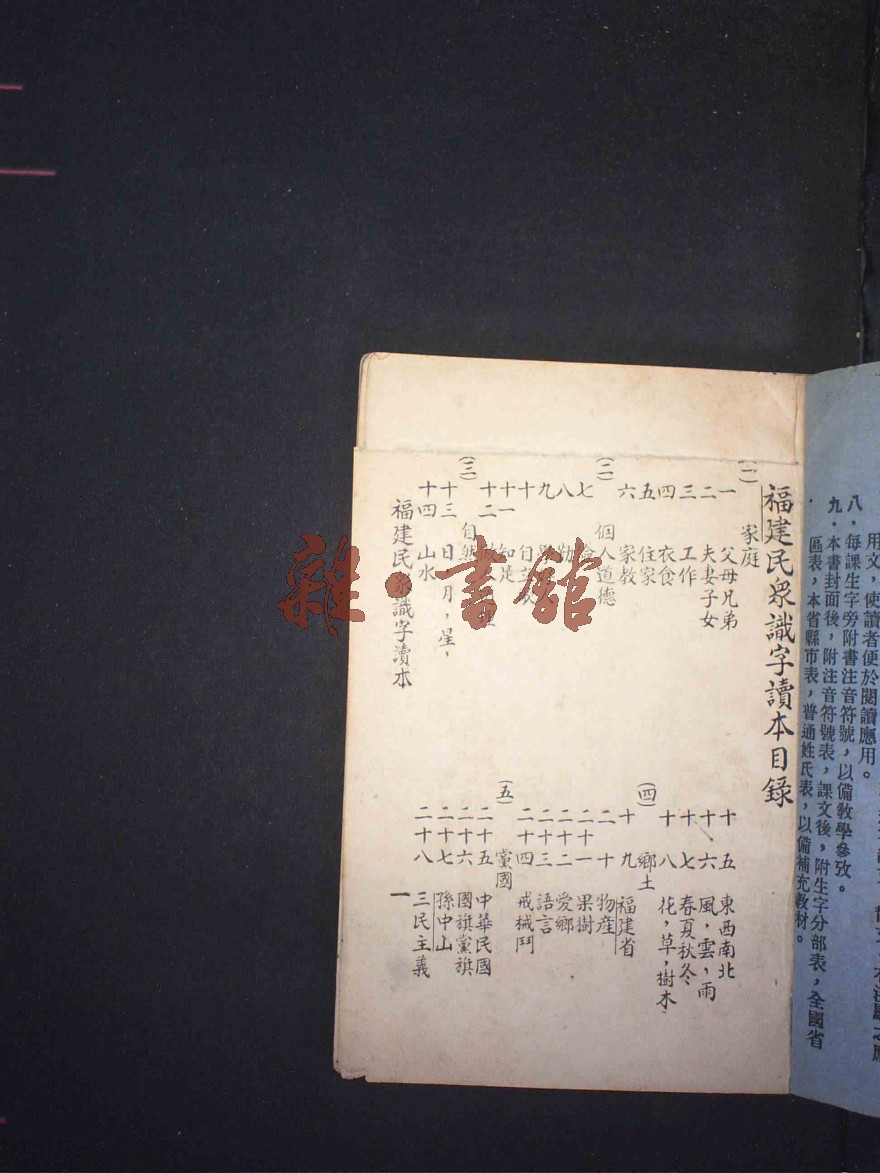 用文，使讀者便於閱讀應用。
八．每課生字旁附書注音符號，以備敎學參攷。
九．本書封面後，附注音符號表，課文後，附生字分部表，全國省
區表，本省縣市表，普通姓氏表，以備補充敎材。
福建民衆識字讀本目錄
(一) 家庭
一 父母兄弟
二 夫妻子女
三 工作
四 衣食
五 住家
六 家教
(二) 個人道德
七
八 勤
九
十 自立
十一 知足
十二
(三) 自然
十三 日，月，星，
十四 山水
福建民衆識字讀本
十五 東西南北
十六 風，雲，雨
十七 春夏秋冬
十八 花，草，樹木
(四) 鄉土
十九 福建省
二十 物產
二十一 果樹
二十二 愛鄉
二十三 語言
二十四 戒械鬥
(五) 黨國
二十五 中華民國
二十六 國旗黨旗
二十七 孫中山
二十八 三民主義
一
雜·書館